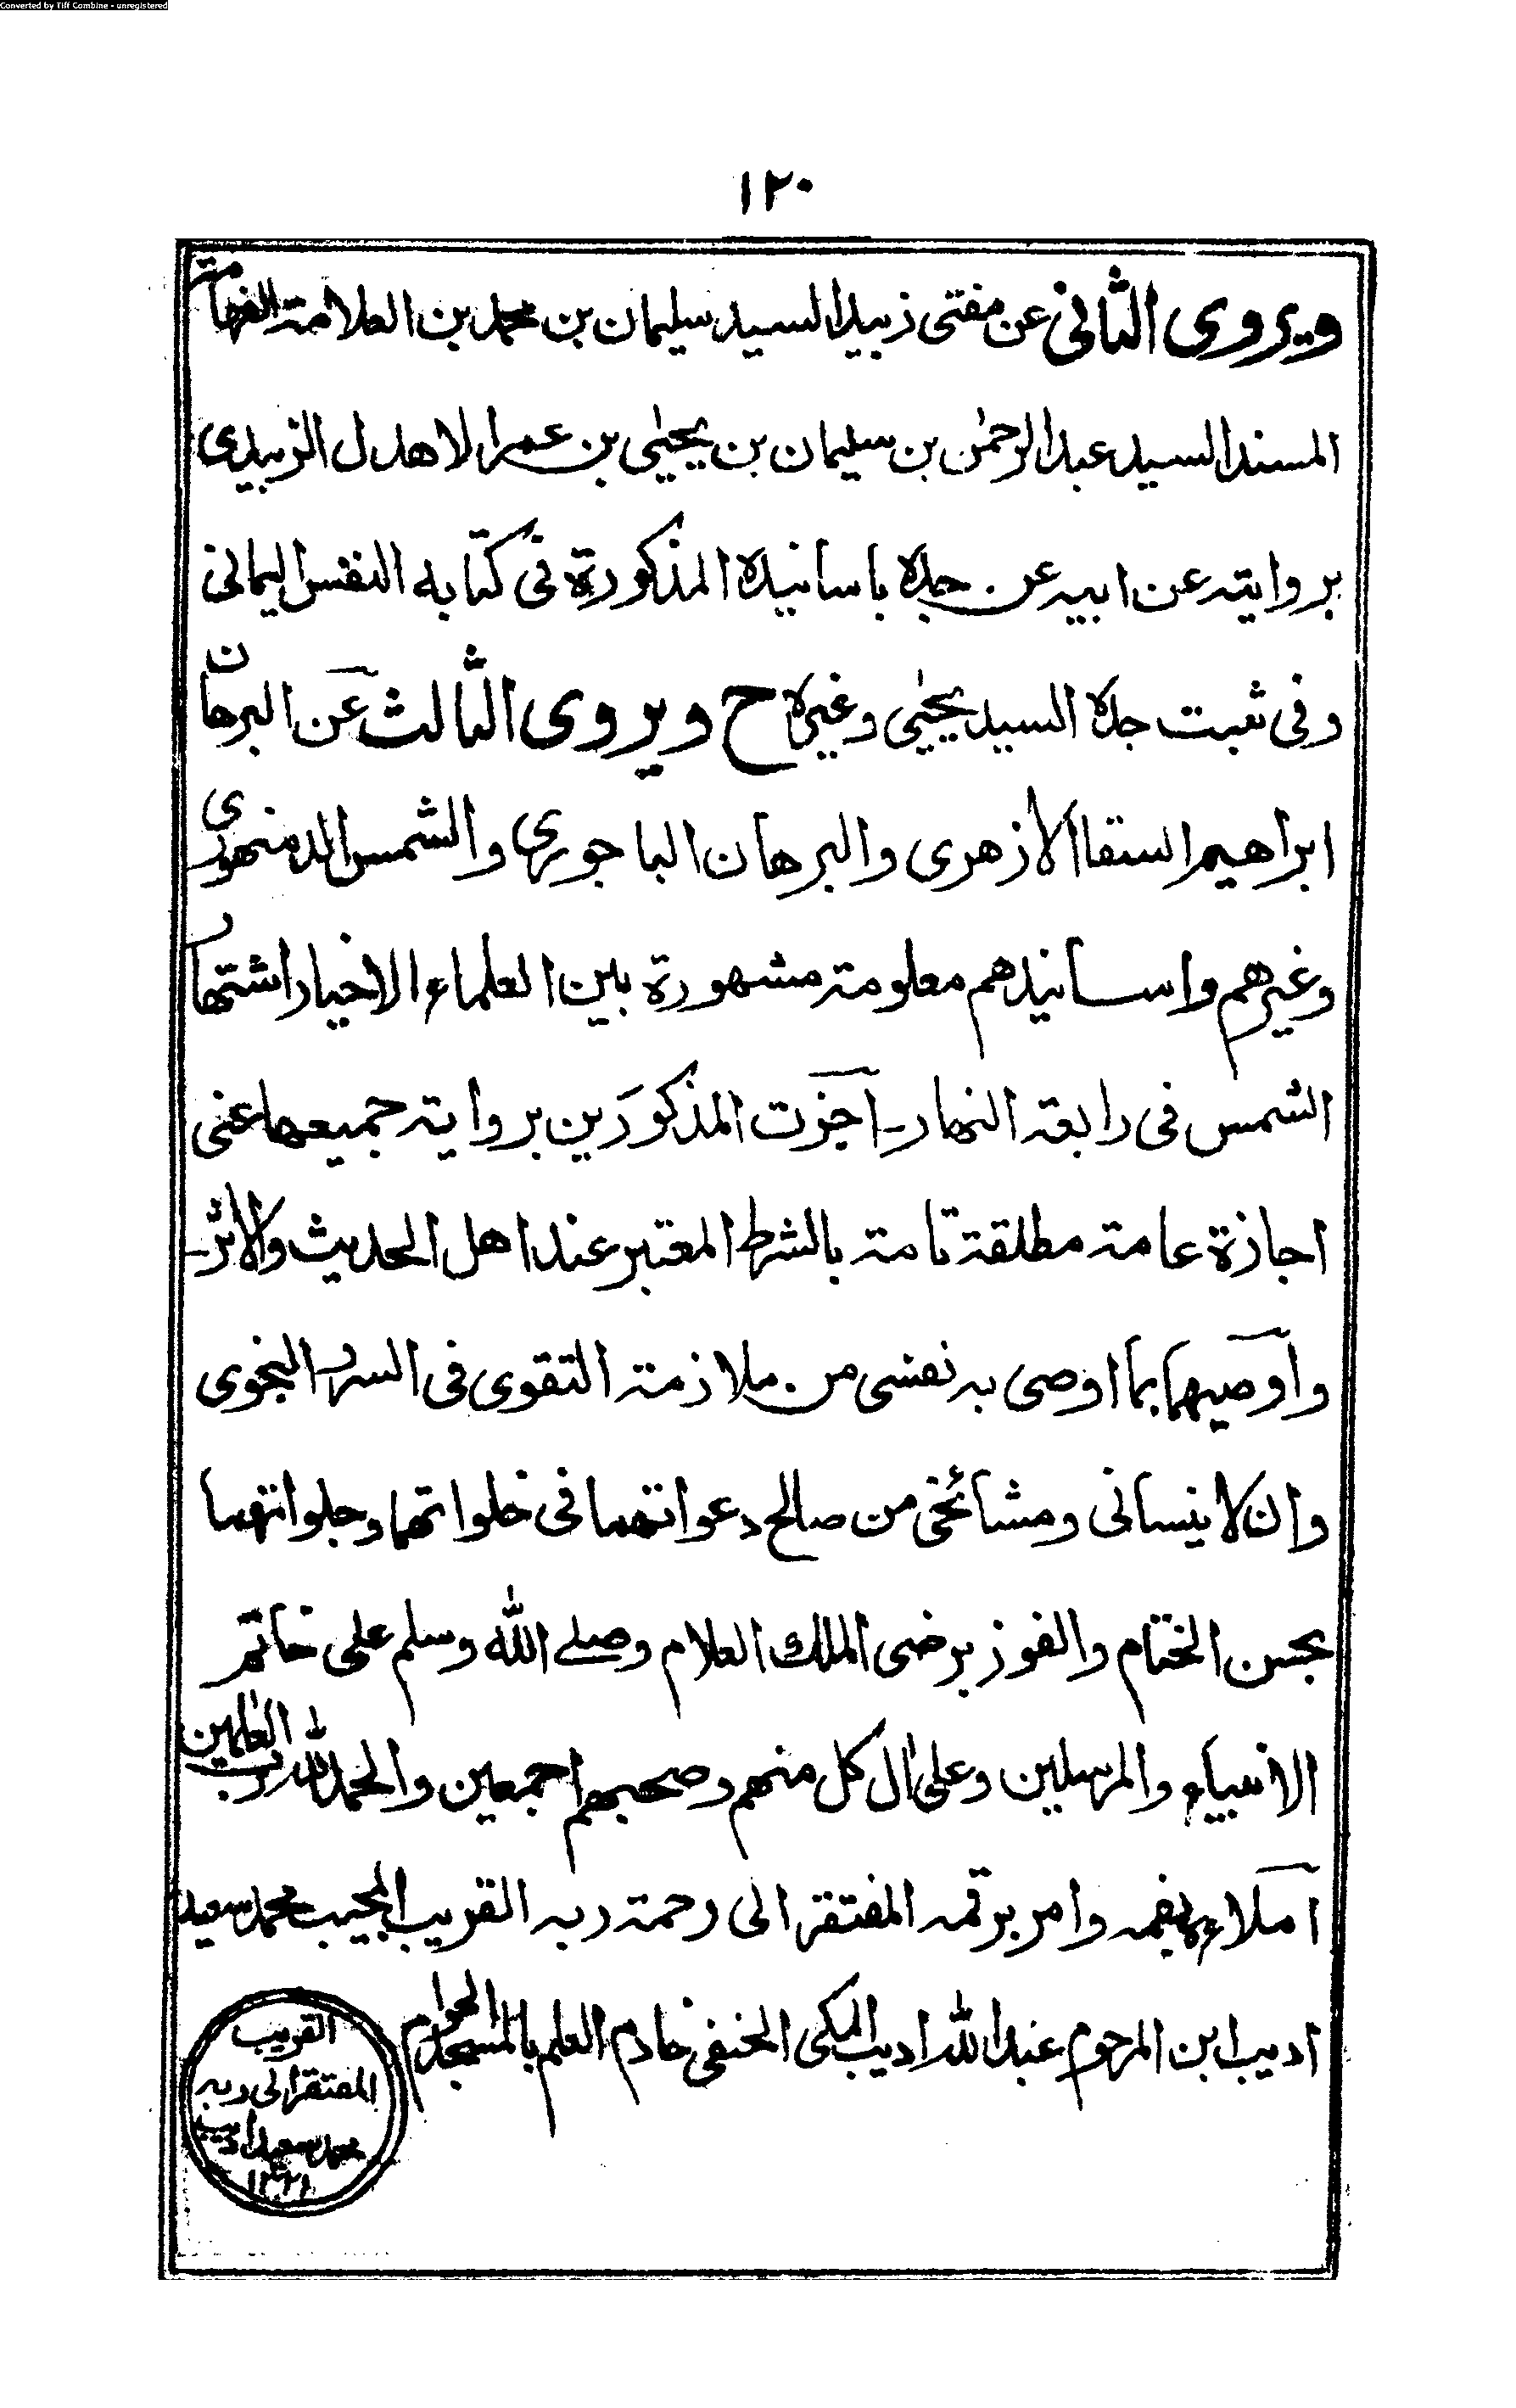 Converted by Tiff Combine - unregistered
١٢٠
ويروى الثانى عن مفتى زبيد السيد سليمان بن محمد بن العلامة الفهامة
المسند السيد عبد الرحمٰن بن سليمان بن يحيٰى بن عمر الاهدل الزبيدى
بروايته عن ابيه عن جده باسانيده المذكورة فى كتابه النفس اليمانى
وفى ثبت جده السيد يحيٰى وغيره ح ويروى الثالث عن البرهان
ابراهيم السقا الازهرى والبرهان الباجورى والشمس الدمنهورى
وغيرهم واسانيدهم معلومة مشهورة بين العلماء الاخيار اشتهار
الشمس فى رابعة النهار۔ اَجَزت المذكورَين برواية جميعها عنى
اجازة عامة مطلقة تامة بالشرط المعتبر عند اهل الحديث والاثر۔
واوصيهما بما اوصى به نفسى من ملازمة التقوى فى السر والنجوى
وان لا ينسانى ومشائخى من صالح دعواتهما فى خلواتهما وجلواتهما
بحسن الختام والفوز برضى الملك العلام وصلے الله وسلم على خاتم
الانبياء والمرسلين وعلىٰ اٰل كل منهم وصحبهم اجمعين والحمد لله رب العٰلمين
املاء بفمه وامر برقمه المفتقر الى رحمة ربه القريب المجيب محمد سعيد
اديب ابن المرحوم عبد الله اديب المكى الحنفى خادم العلم بالمسجد الحرام
القريب
المفتقر الى ربه
محمد سعيد اديب